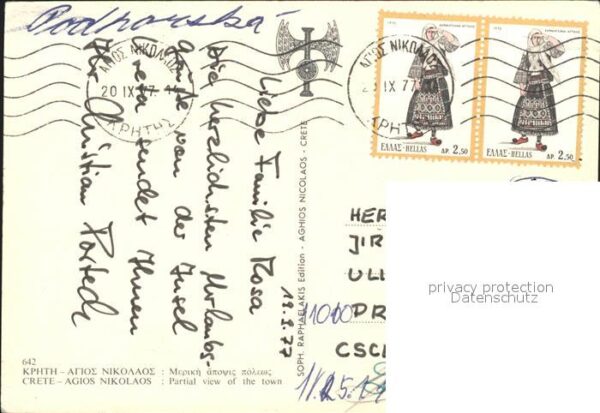 Podhorská
Liebe Familie Kosa
Die herzlichsten Urlaubs-
grüße von der Insel
Kreta sendet Ihnen
Ihr Christian
19.9.77
ΑΓΙΟΣ ΝΙΚΟΛΑΟΣ
20 IX 77
ΚΡΗΤΗΣ
ΑΓΙΟΣ ΝΙΚΟΛΑΟΣ
20 IX 77
ΚΡΗΤΗΣ
ΕΛΛΑΣ-HELLAS ΔΡ. 2.50
ΕΛΛΑΣ-HELLAS ΔΡ. 2.50
SOPH. RAPHAELAKIS Edition - AGHIOS NICOLAOS - CRETE
HER
JIŘ
ULI
11000 PR
CSC
privacy protection
Datenschutz
642
ΚΡΗΤΗ – ΑΓΙΟΣ ΝΙΚΟΛΑΟΣ : Μερική ἄποψις πόλεως
CRETE – AGIOS NIKOLAOS : Partial view of the town